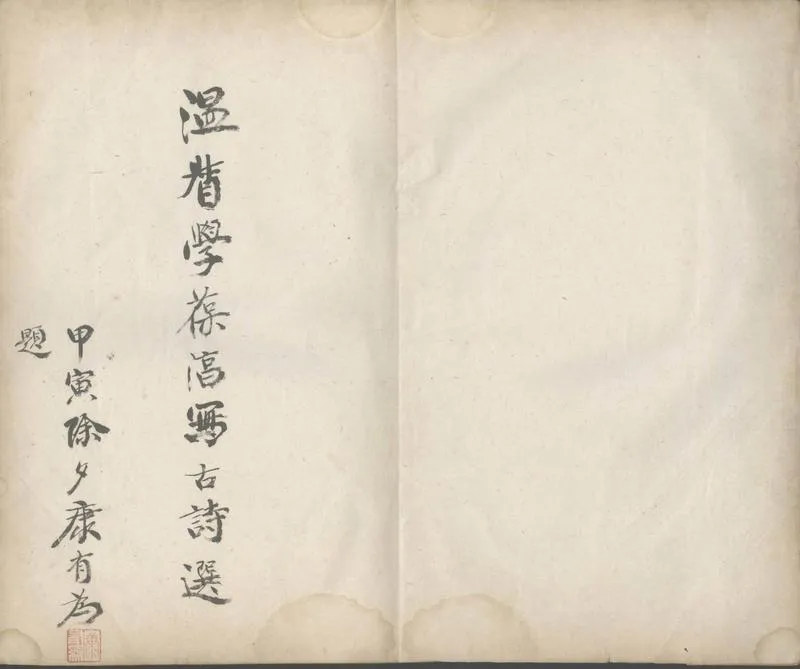 溫督學葆淳寫古詩選
甲寅除夕康有為
題